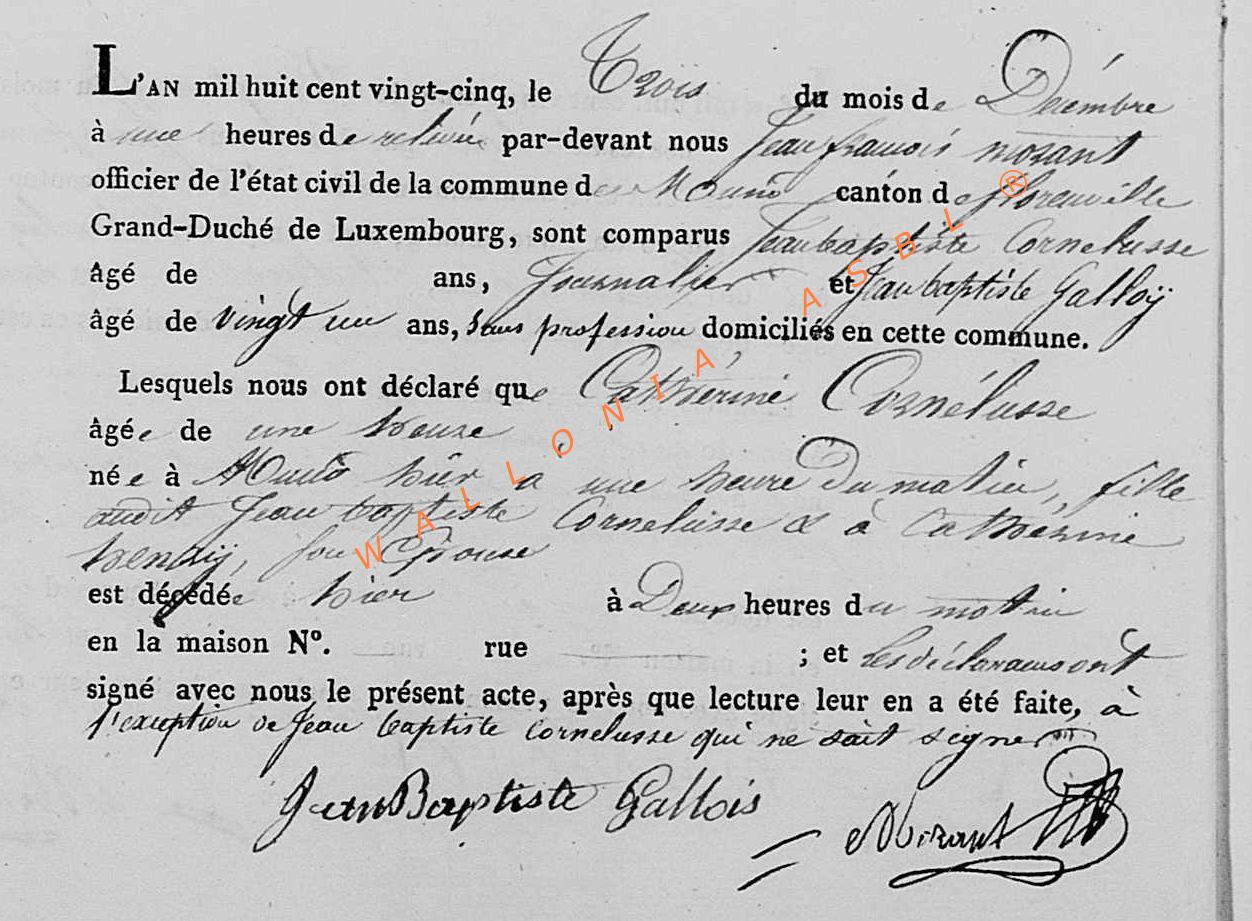 L'AN mil huit cent vingt-cinq, le Trois du mois de Décembre
à une heures de relevée par-devant nous Jean francois mozant
officier de l'état civil de la commune de Muno canton de florenville
Grand-Duché de Luxembourg, sont comparus Jean baptiste Cornelusse
âgé de ans, Journalier et Jean baptiste Galloÿ
âgé de vingt un ans, sans profession domiciliés en cette commune.
Lesquels nous ont déclaré que Cathérine Cornélusse
âgée de une heure
née à Muno hier a une heure Du matin, fille
audit Jean baptiste Cornelusse & à Cathérine
henrÿ, son Epouse
est décédée hier à Deux heures du matin
en la maison N°. rue ; et les déclarans ont
signé avec nous le présent acte, après que lecture leur en a été faite, à
l'exception de Jean baptiste Cornelusse qui ne sait signer
Jean Baptiste Gallois
Mozant
WALLONIA ASBL ®